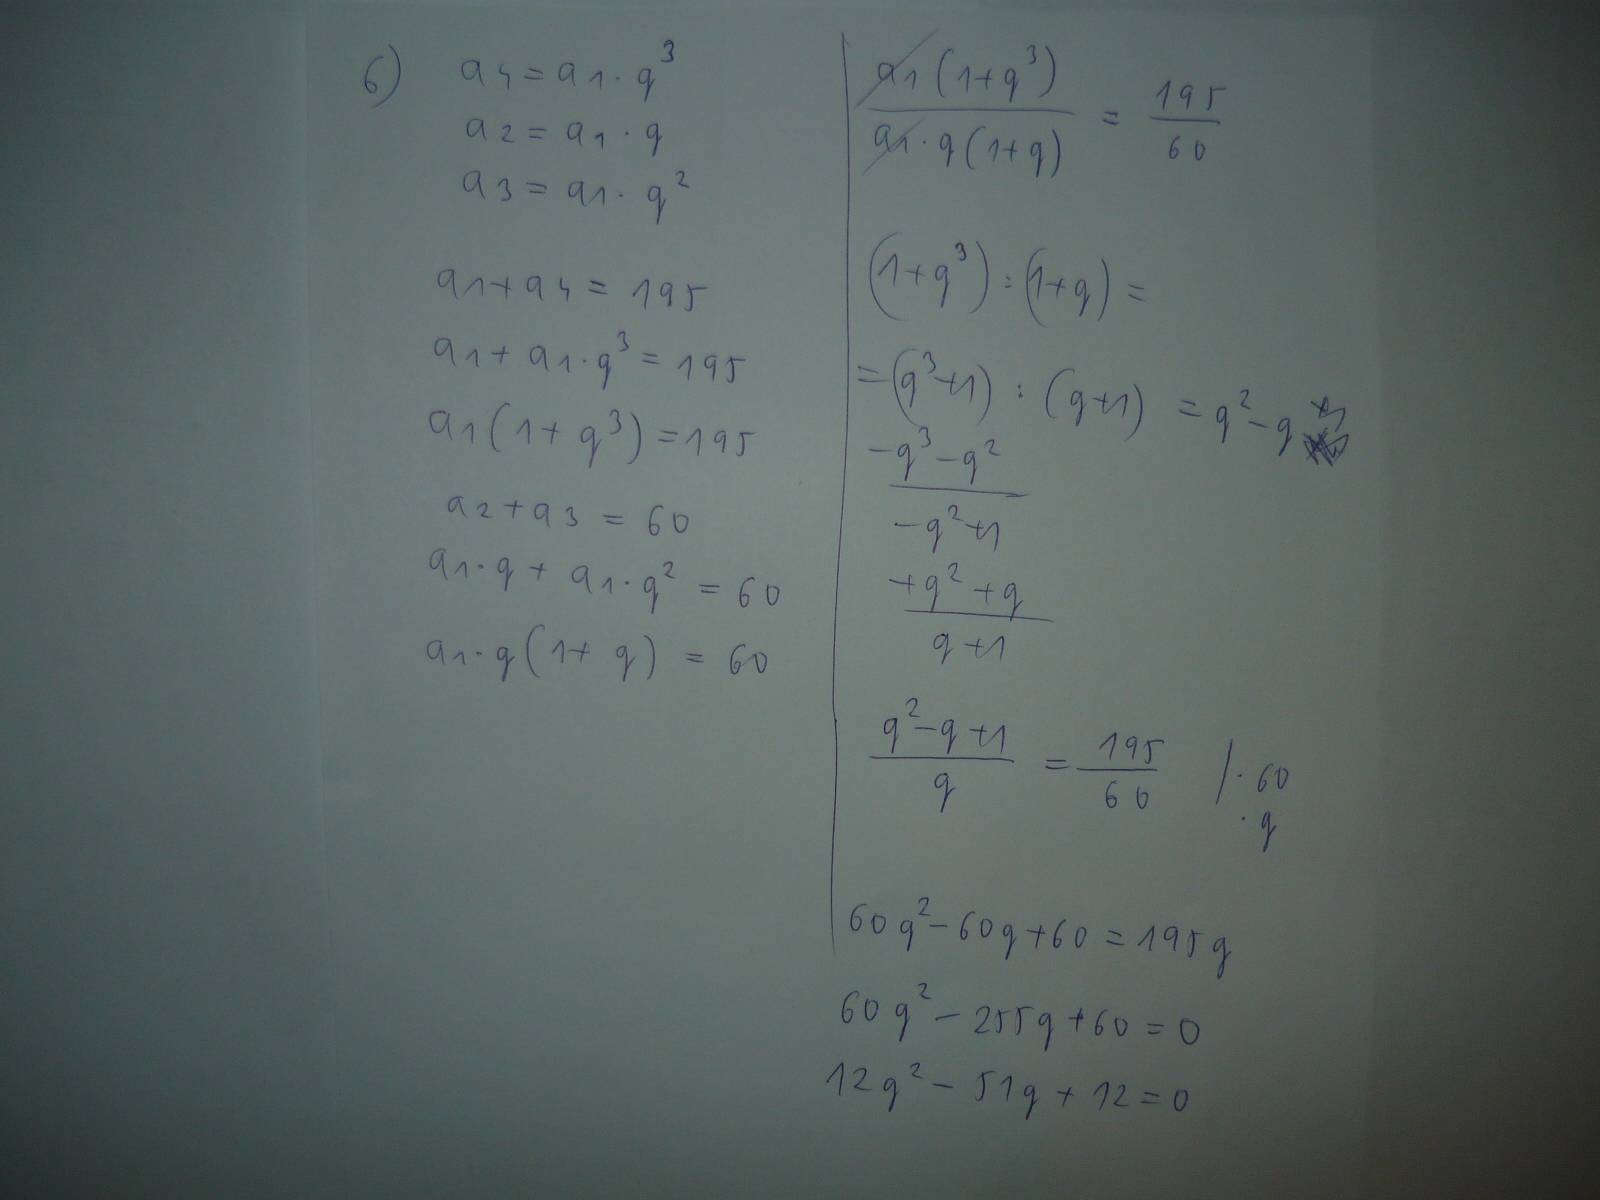 6) a4 = a1 · q³
a2 = a1 · q
a3 = a1 · q²
a1 + a4 = 195
a1 + a1 · q³ = 195
a1 (1 + q³) = 195
a2 + a3 = 60
a1 · q + a1 · q² = 60
a1 · q (1 + q) = 60
a1 (1 + q³) / a1 · q (1 + q) = 195 / 60
(1 + q³) : (1 + q) =
= (q³ + 1) : (q + 1) = q² - q + 1
- q³ - q²
- q² + 1
+ q² + q
q + 1
q² - q + 1 / q = 195 / 60 / · 60
· q
60q² - 60q + 60 = 195q
60q² - 255q + 60 = 0
12q² - 51q + 12 = 0